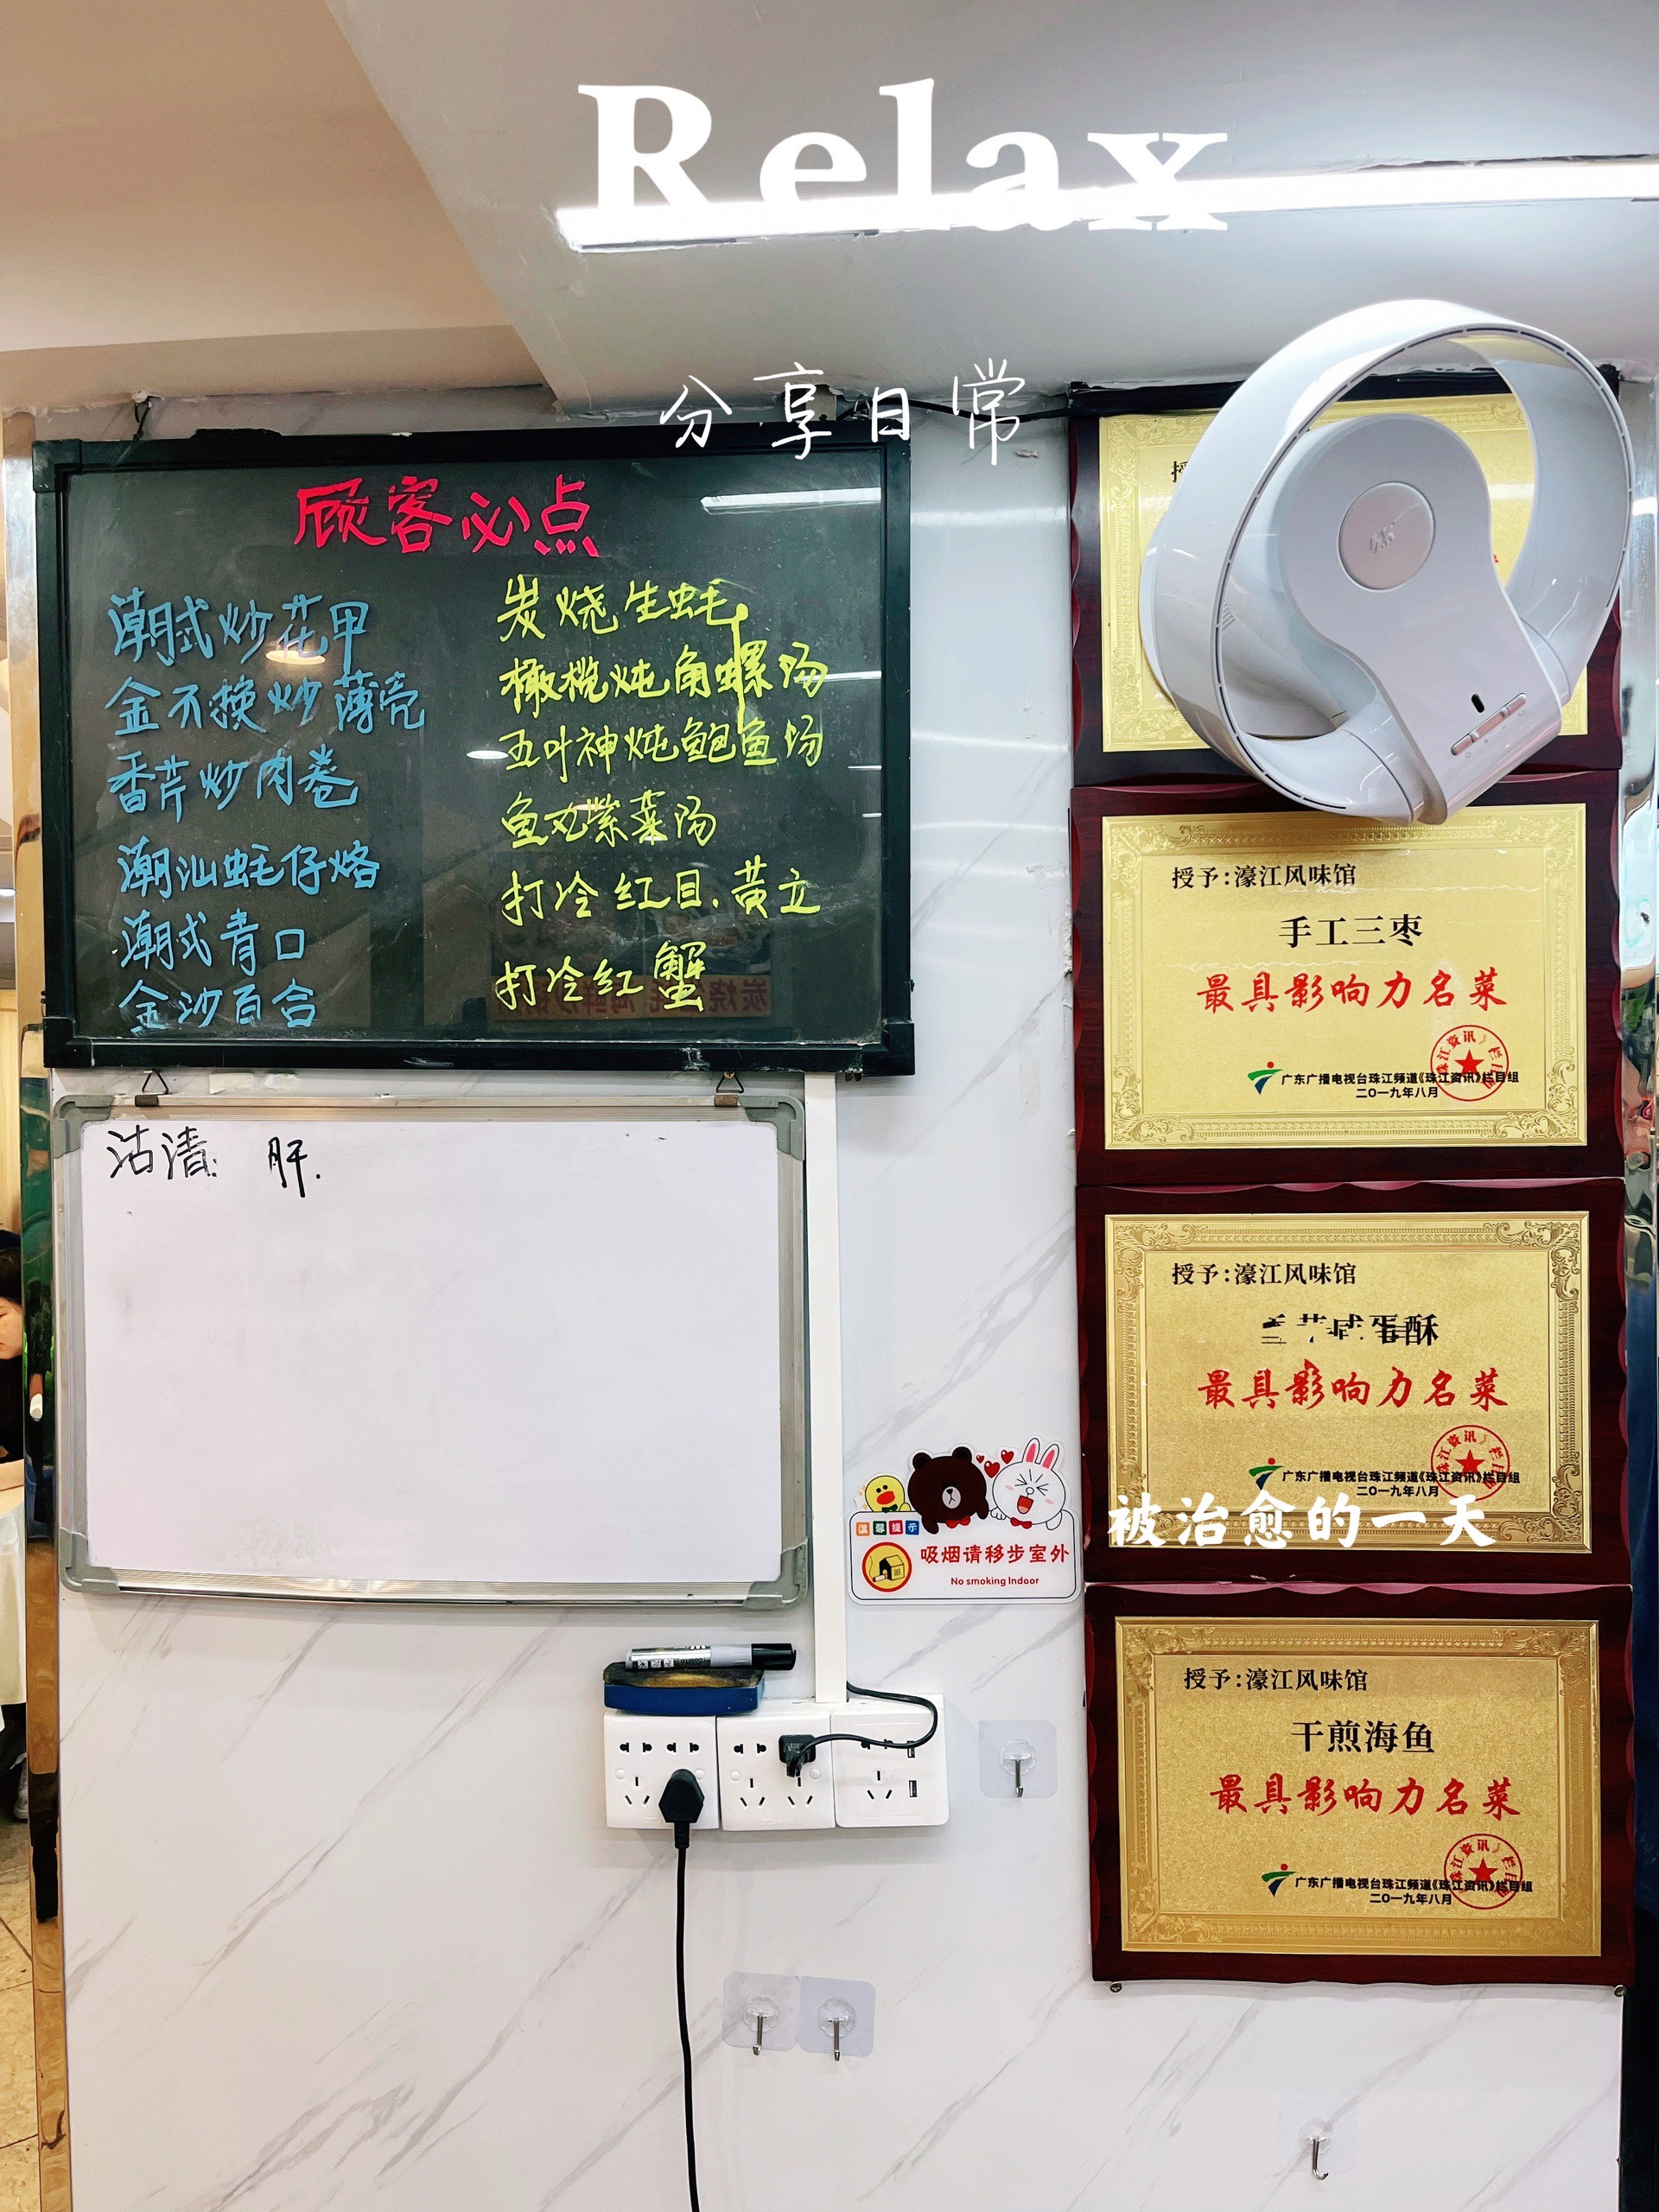 Relax
分享日常
顾客必点
潮式炒花甲
金不换炒薄壳
香芹炒肉卷
潮汕蚝仔烙
潮式青口
金沙百合
炭烧生蚝
橄榄炖角螺汤
五叶神炖鲍鱼汤
鱼丸紫菜汤
打冷红目.黄立
打冷红蟹
沽清: 肝.
授予:濠江风味馆
手工三枣
最具影响力名菜
广东广播电视台珠江频道《珠江资讯》栏目组
二〇一九年八月
授予:濠江风味馆
蛋酥
最具影响力名菜
广东广播电视台珠江频道《珠江资讯》栏目组
二〇一九年八月
被治愈的一天
温馨提示
吸烟请移步室外
No smoking Indoor
授予:濠江风味馆
干煎海鱼
最具影响力名菜
广东广播电视台珠江频道《珠江资讯》栏目组
二〇一九年八月